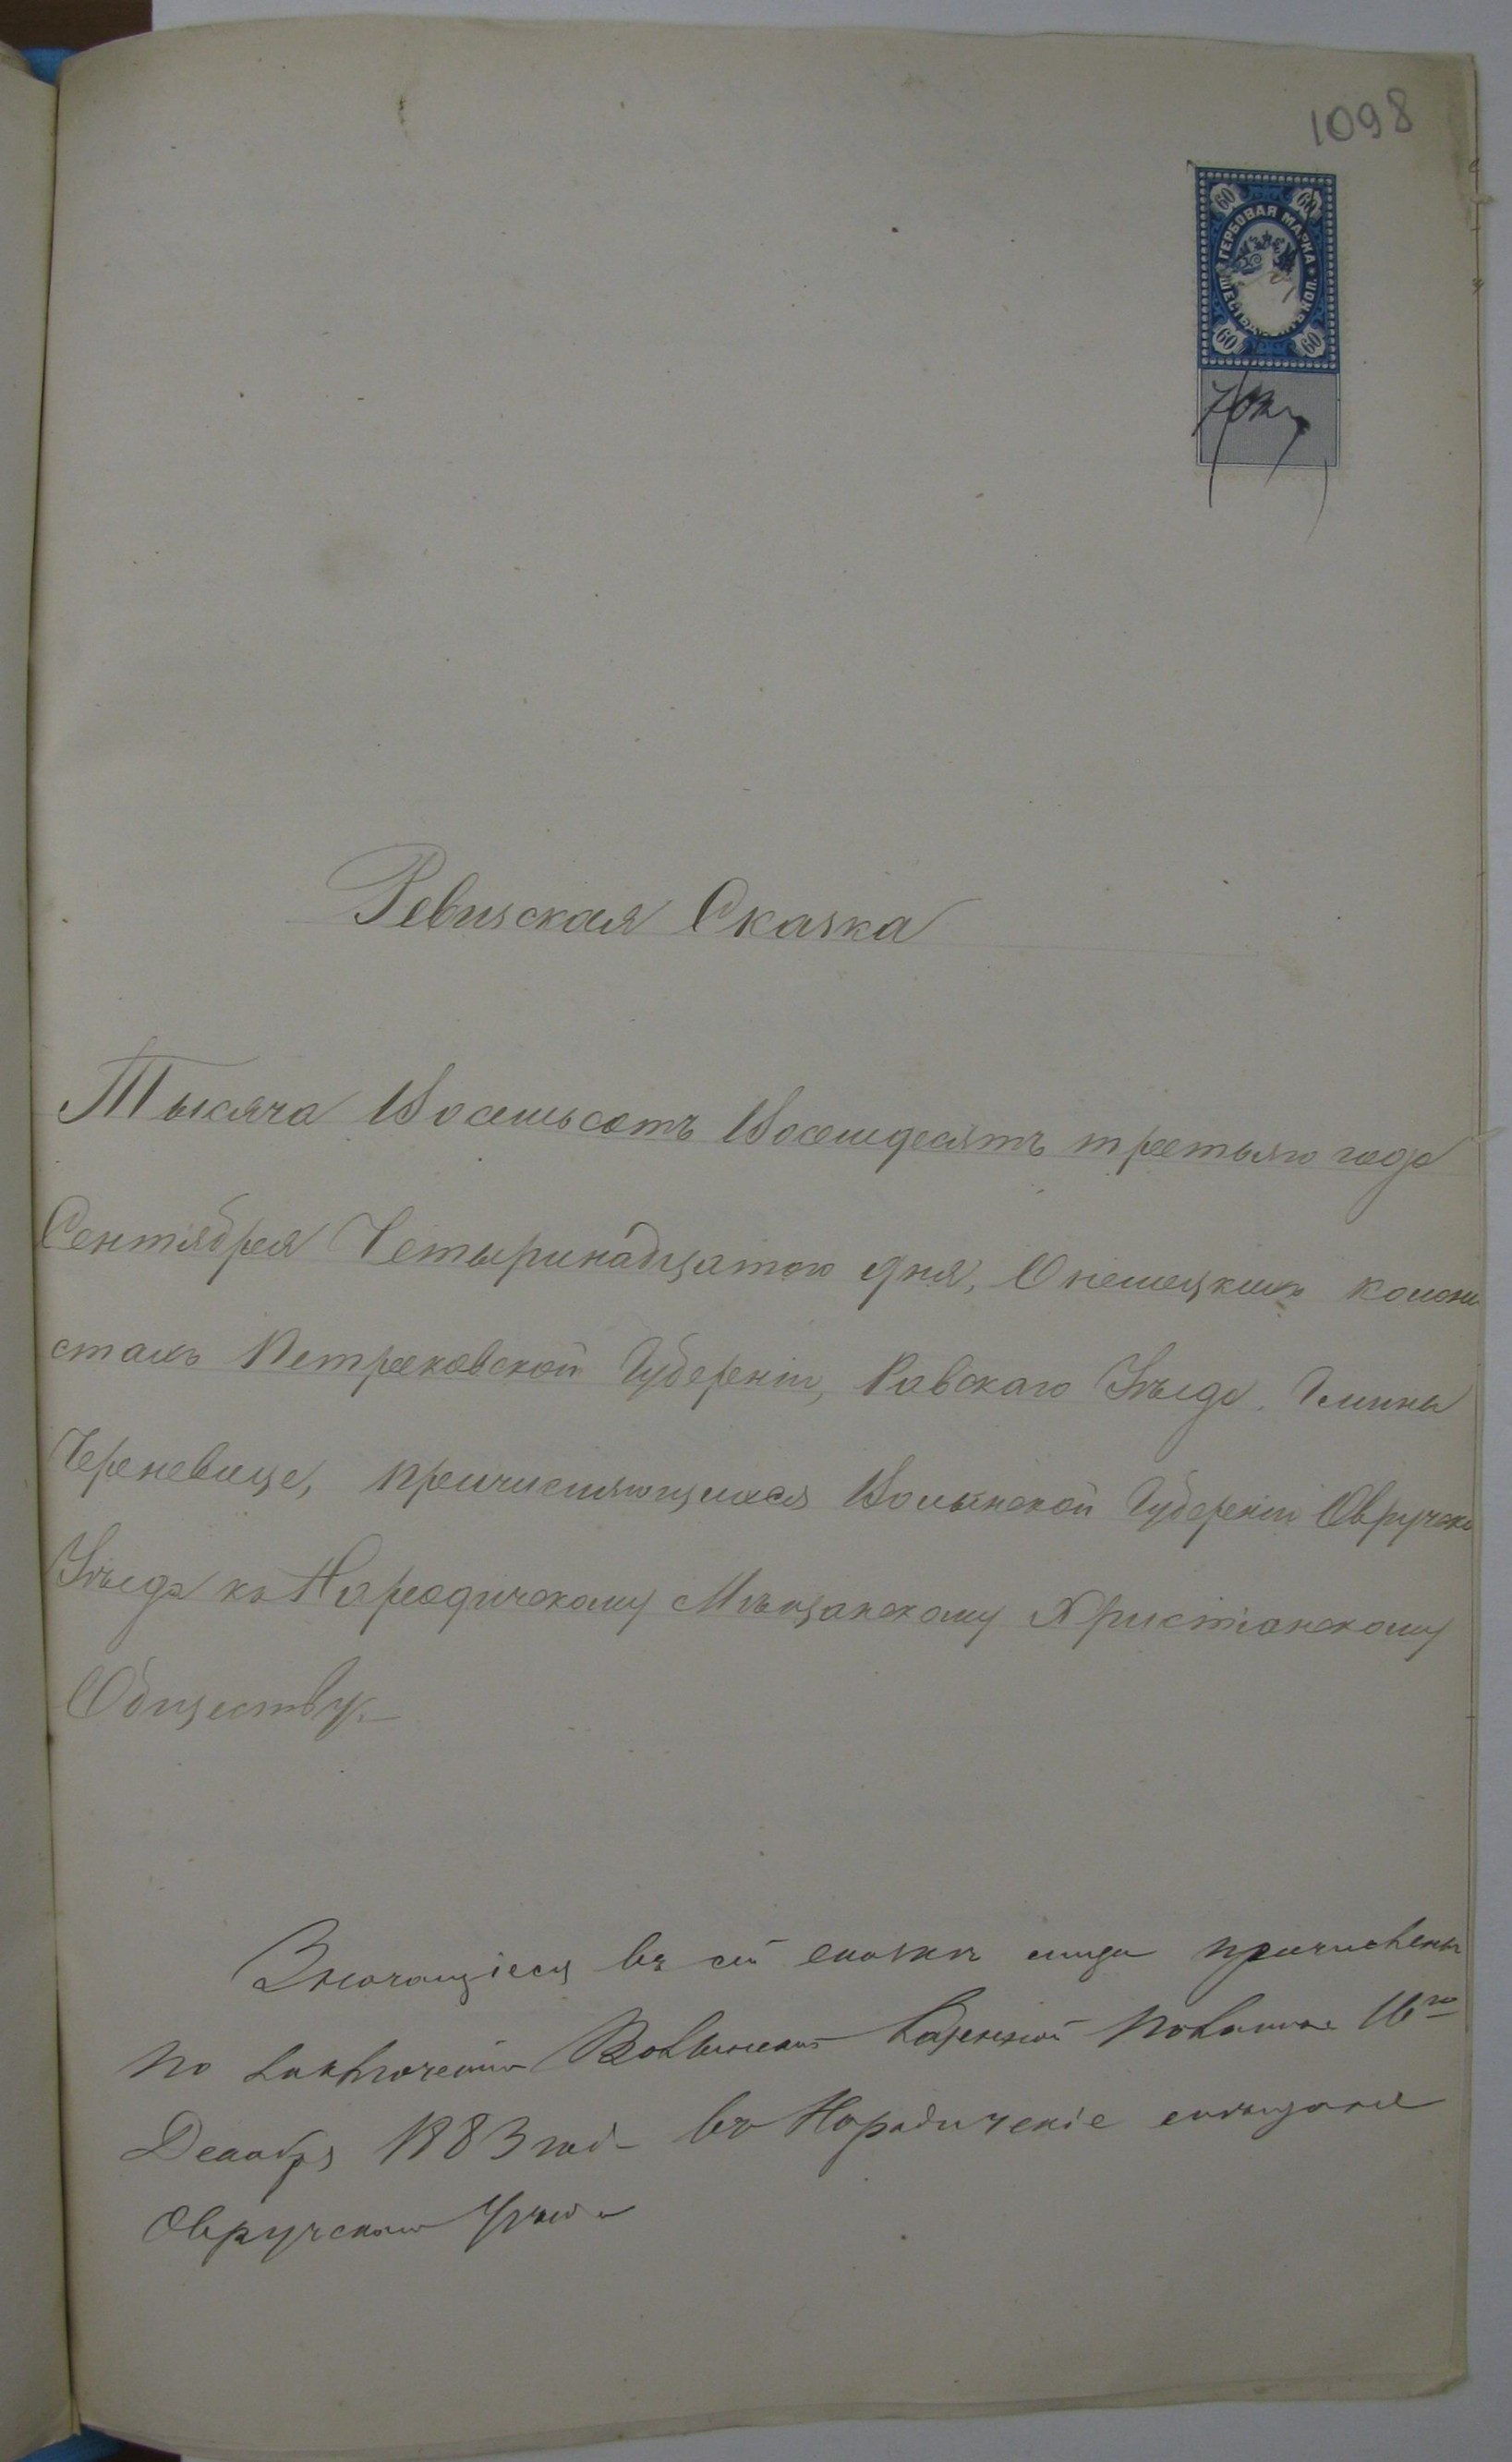 1098
60 60
ГЕРБОВАЯ МАРКА
60 60
Ревизская Сказка
Тысяча Восемьсотъ Восемдесятъ третьяго года
Сентября Четыринадцатого дня, О немецкихъ колони
стахъ Петроковской Губерніи, Равскаго Уѣзда, Гмины
Череневице, причисляющихся Волынской Губерніи Овручско
Уѣзда къ Народичскому Мѣщанскому Христіанскому
Обществу.
Значащіеся въ сей сказкѣ лица причислены
по заключенію Волынской Казенной Палаты 16го
Декабря 1883 года въ Народичскіе мѣщане
Овручскаго Уѣзда